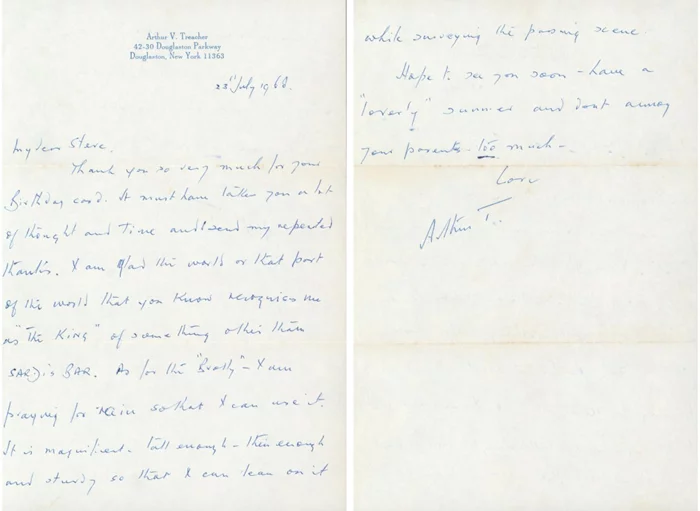 Arthur V. Treacher
42-30 Douglaston Parkway
Douglaston, New York 11363
July 196
My dear Steve.
Thank you so very much for your
Birthday card. It must have taken you a lot
of thought and Time and I send my repeated
thanks. I am glad the world or that part
of the world that you know recognises me
as "The King" of something other than
SARDis BAR. As for the "Brolly" - I am
praying for rain so that I can use it.
It is magnificent. Tall enough - thin enough
and sturdy so that I can lean on it
while surveying the passing scene.
Hope to see you soon - have a
"loverly" summer and dont annoy
your parents too much -
Love
Arthur T.